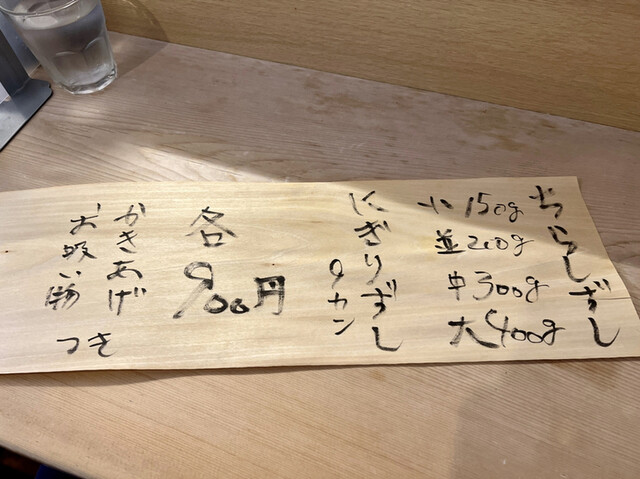 ちらしずし
小 150g
並 200g
中 300g
大 400g
にぎりずし
9カン
各
900円
かきあげ
お吸い物
つき